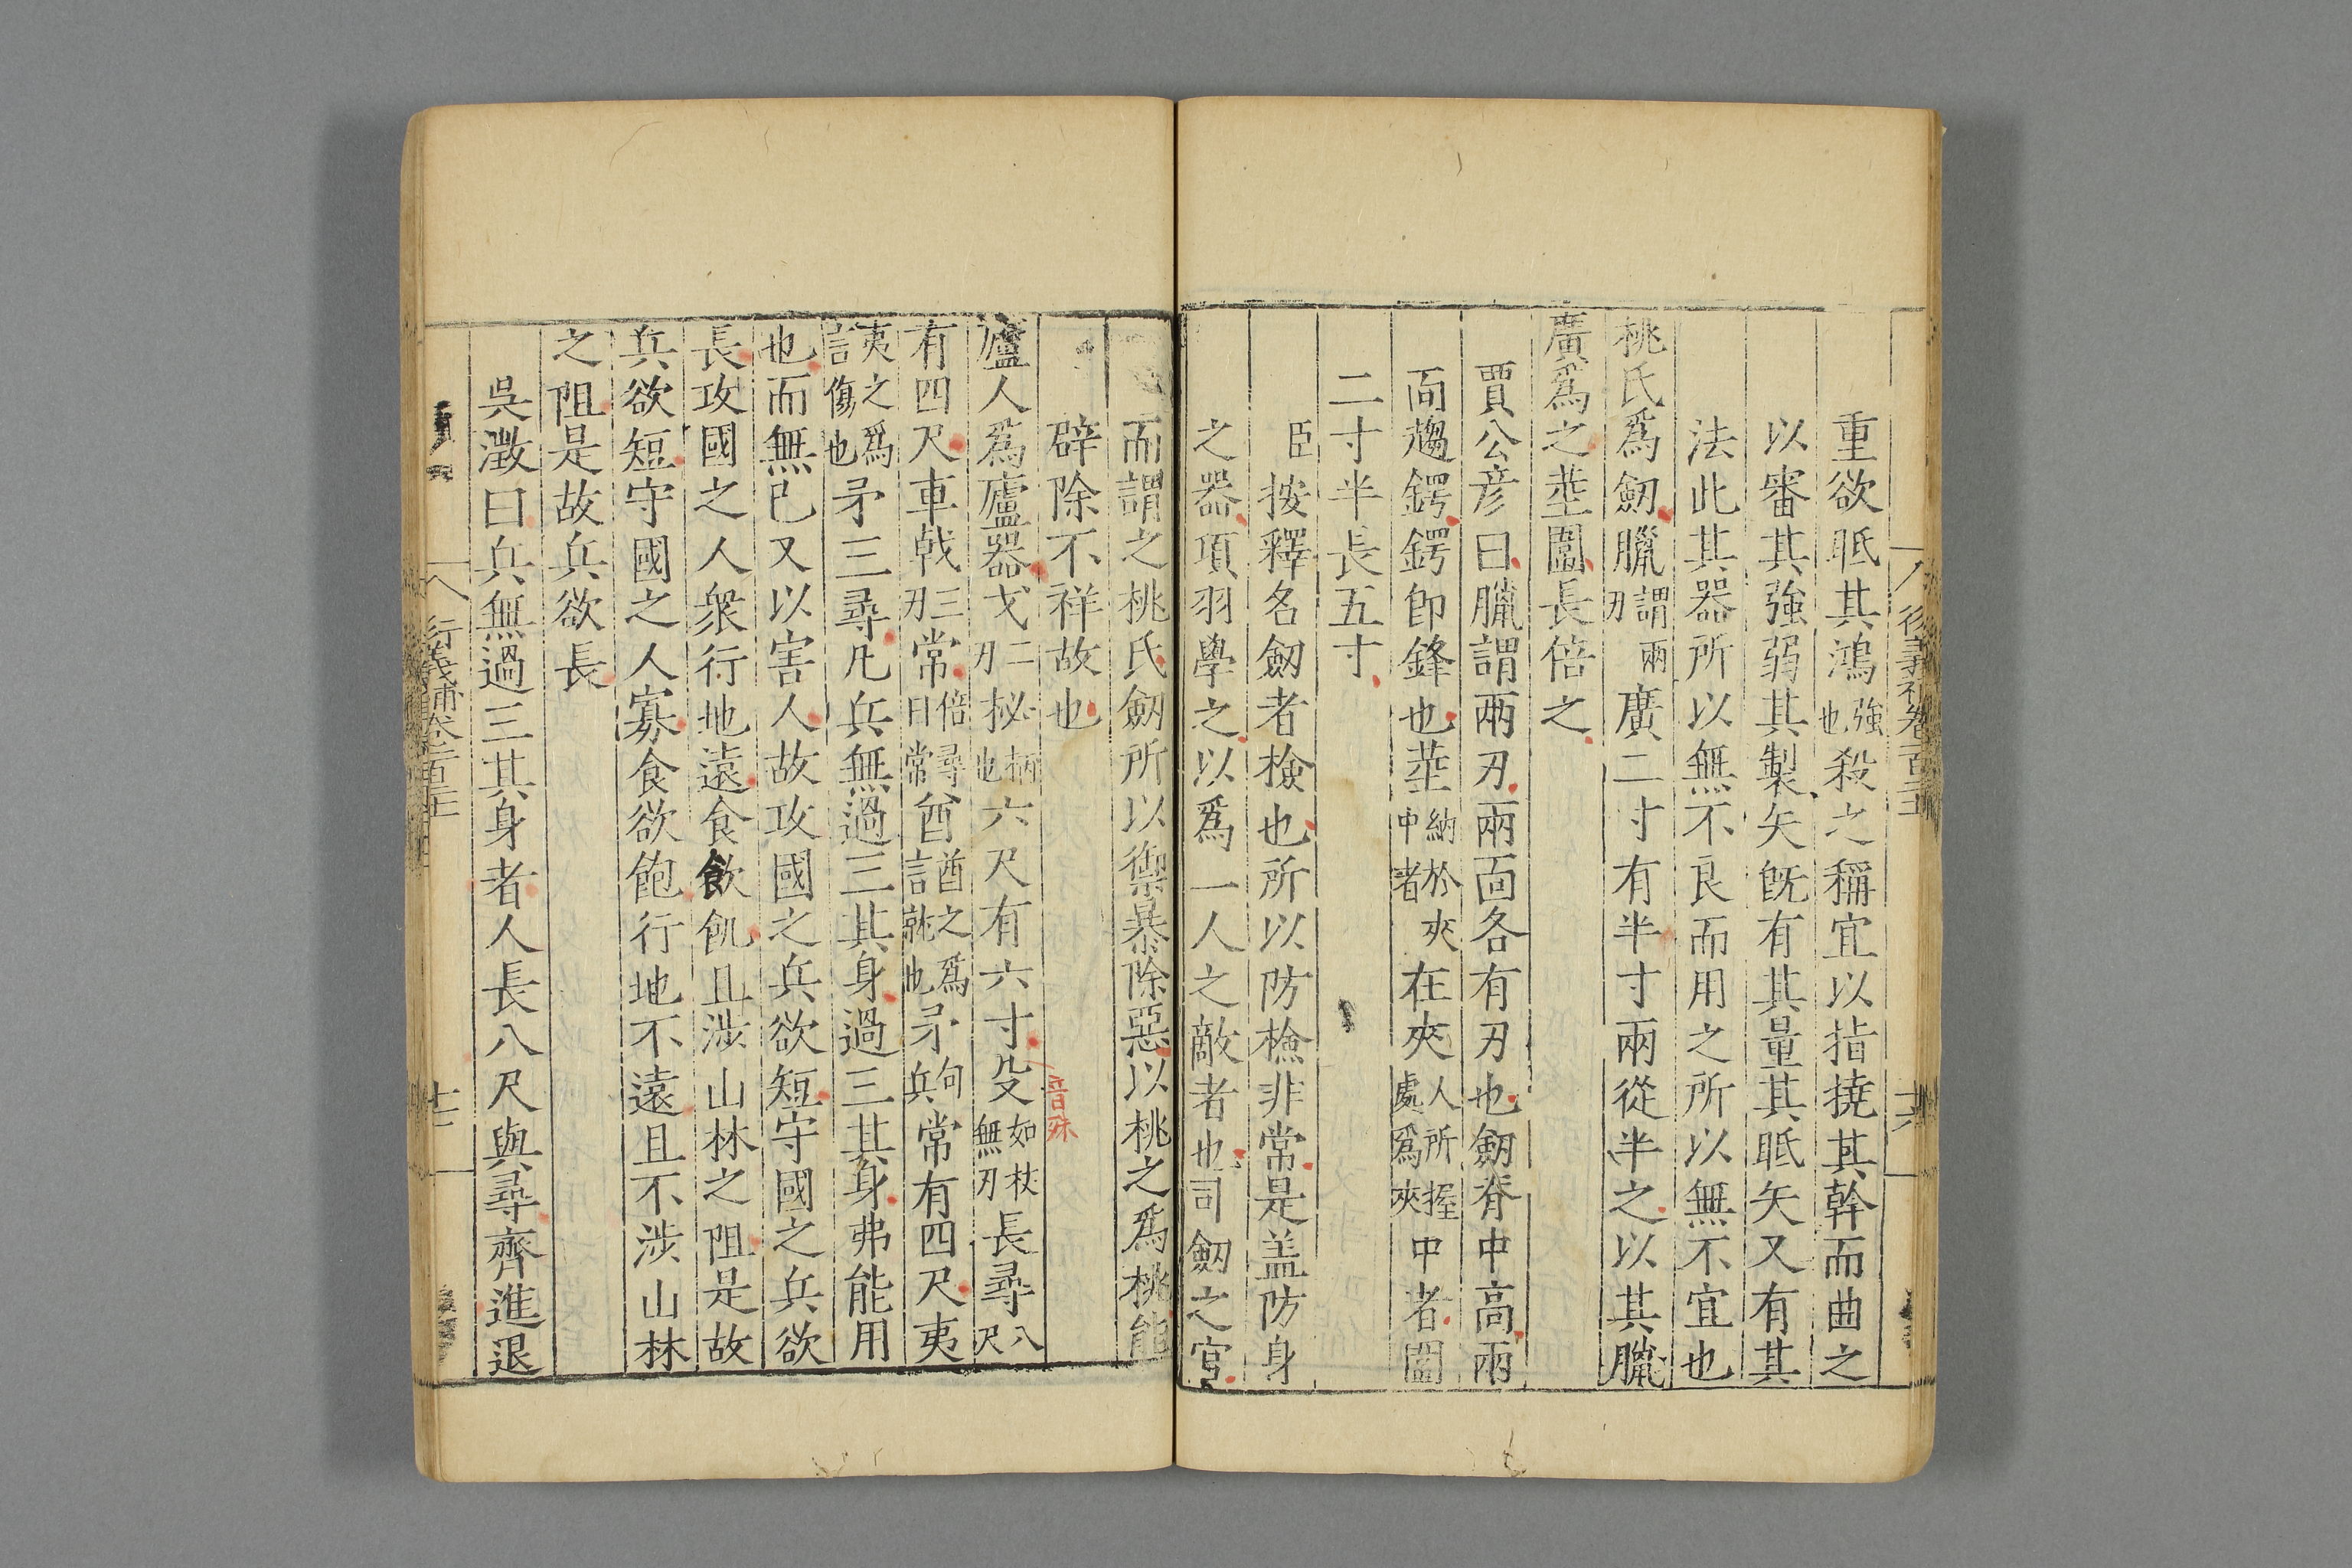 重欲眡其鴻強也殺之稱宜以指撓其幹而曲之
以審其強弱其製矢旣有其量其眡矢又有其
法此其器所以無不良而用之所以無不宜也
桃氏爲劒臘謂兩刃廣二寸有半寸兩從半之以其臘
廣爲之莖圍長倍之
賈公彦曰臘謂兩刃兩面各有刃也劒脊中高兩
面趨鍔鍔卽鋒也莖納於夾中者在夾人所握處爲夾中者圍
二寸半長五寸
臣按釋名劒者檢也所以防檢非常是盖防身
之器項羽學之以爲一人之敵者也司劒之官
而謂之桃氏劒所以禦暴除惡以桃之爲桃能
辟除不祥故也
廬人爲廬器戈二刃柲柄也六尺有六寸殳如杖無刃長尋八尺
音殊
有四尺車戟三刃常倍尋曰常酋酋之爲言就也矛句兵常有四尺夷
夷之爲言傷也矛三尋凡兵無過三其身過三其身弗能用
也而無已又以害人故攻國之兵欲短守國之兵欲
長攻國之人衆行地遠食飲飢且涉山林之阻是故
兵欲短守國之人寡食欲飽行地不遠且不涉山林
之阻是故兵欲長
吳澂曰兵無過三其身者人長八尺與尋齊進退
行義補卷一百二十二
十七